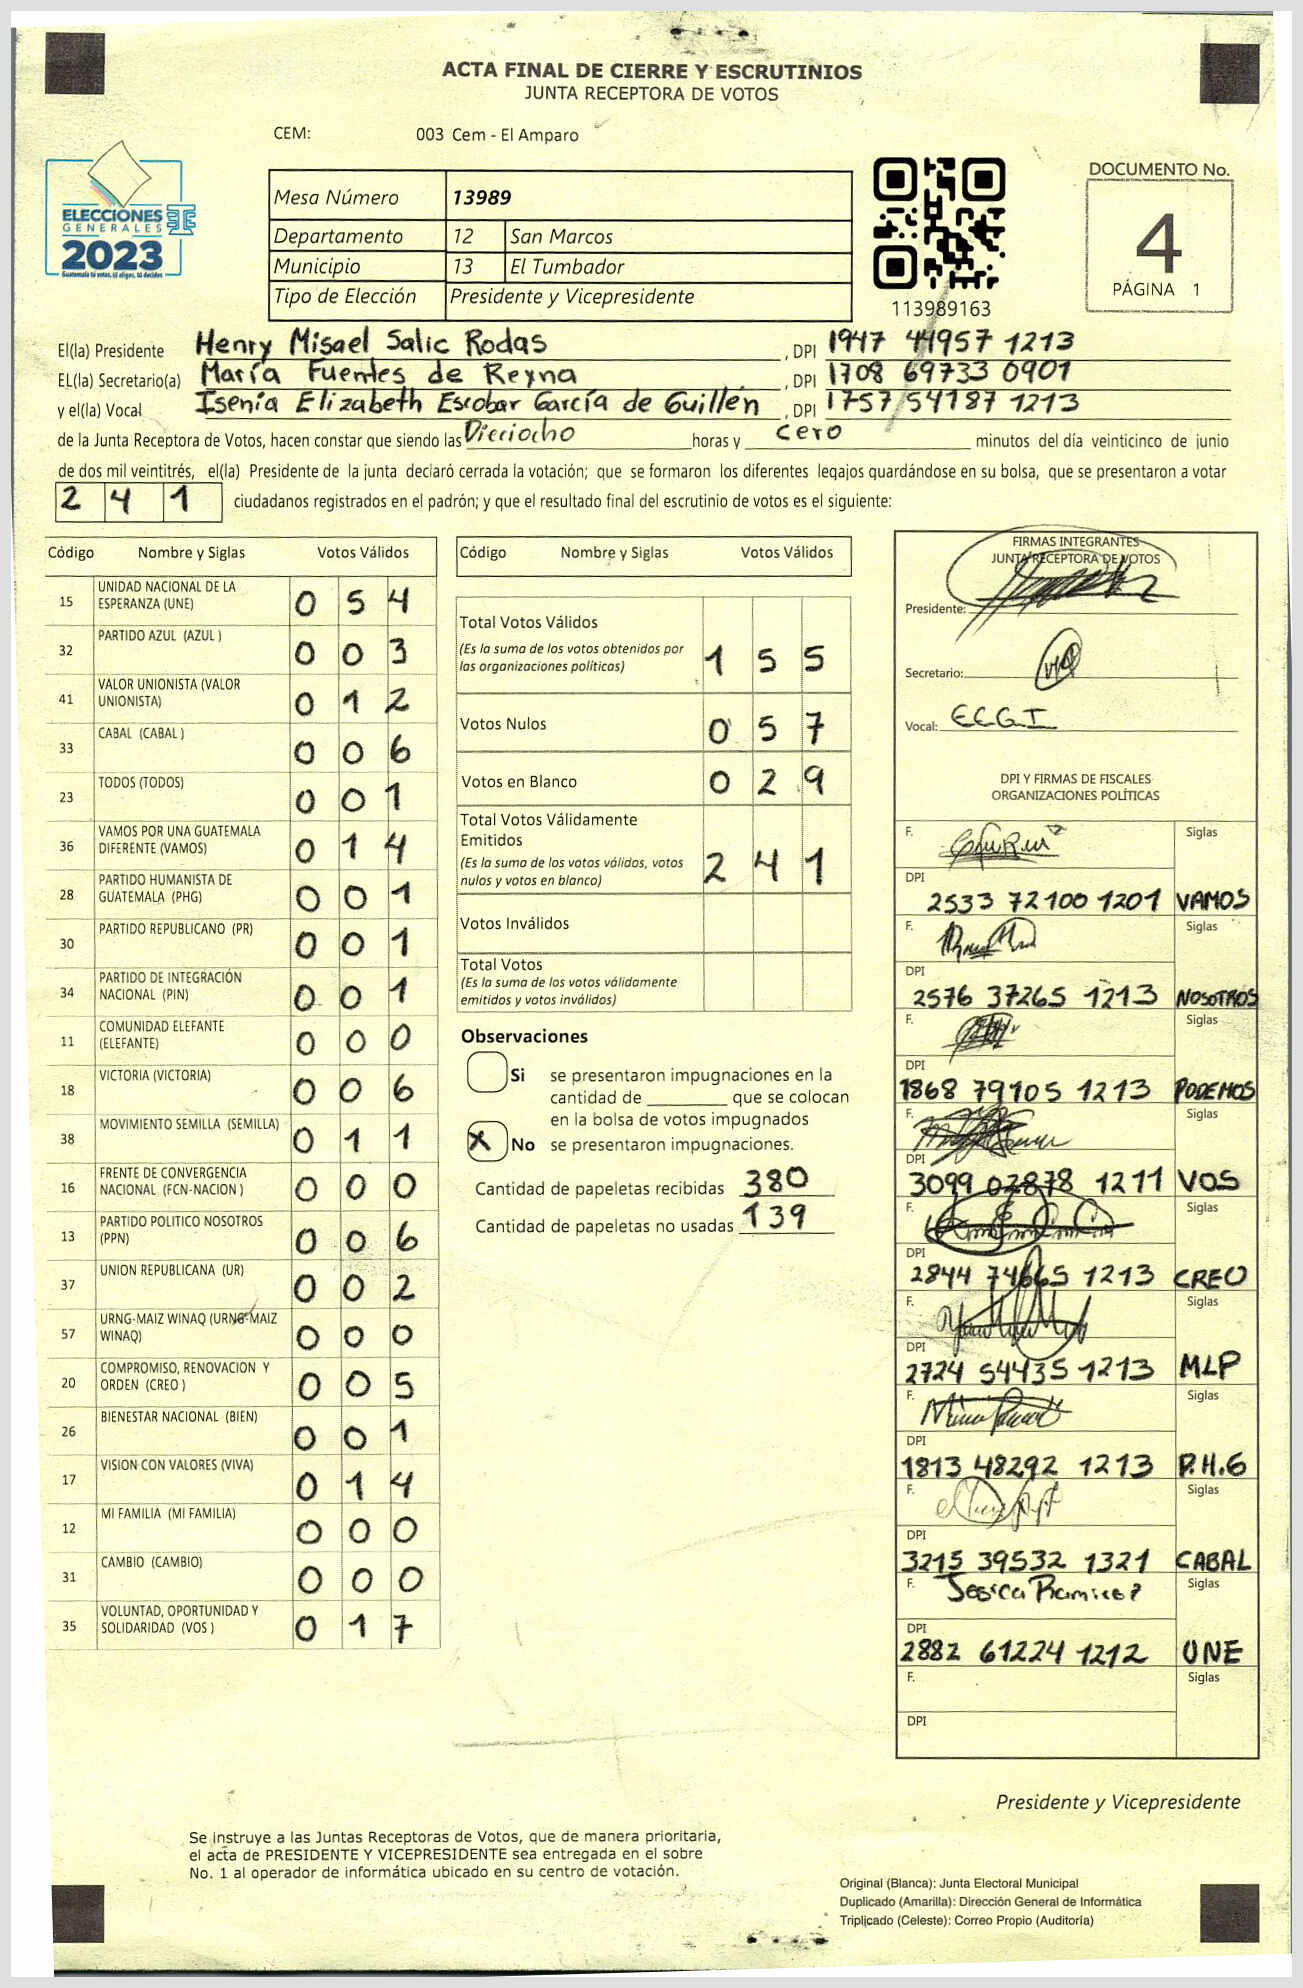 ACTA FINAL DE CIERRE Y ESCRUTINIOS
JUNTA RECEPTORA DE VOTOS
CEM: 003 Cem - El Amparo
ELECCIONES
GENERALES
2023
Guatemala tú votas, tú eliges, tú decides
Mesa Número 13989
Departamento 12 San Marcos
Municipio 13 El Tumbador
Tipo de Elección Presidente y Vicepresidente
113989163
DOCUMENTO No.
4
PÁGINA 1
El(la) Presidente Henry Misael Salic Rodas , DPI 1947 44957 1213
EL(la) Secretario(a) María Fuentes de Reyna , DPI 1708 69733 0901
y el(la) Vocal Isenia Elizabeth Escobar García de Guillén , DPI 1757 54187 1213
de la Junta Receptora de Votos, hacen constar que siendo las Dieciocho horas y cero minutos del día veinticinco de junio
de dos mil veintitrés, el(la) Presidente de la junta declaró cerrada la votación; que se formaron los diferentes legajos guardándose en su bolsa, que se presentaron a votar
2 4 1 ciudadanos registrados en el padrón; y que el resultado final del escrutinio de votos es el siguiente:
Código Nombre y Siglas Votos Válidos
15 UNIDAD NACIONAL DE LA ESPERANZA (UNE) 0 5 4
32 PARTIDO AZUL (AZUL ) 0 0 3
41 VALOR UNIONISTA (VALOR UNIONISTA) 0 1 2
33 CABAL (CABAL ) 0 0 6
23 TODOS (TODOS) 0 0 1
36 VAMOS POR UNA GUATEMALA DIFERENTE (VAMOS) 0 1 4
28 PARTIDO HUMANISTA DE GUATEMALA (PHG) 0 0 1
30 PARTIDO REPUBLICANO (PR) 0 0 1
34 PARTIDO DE INTEGRACIÓN NACIONAL (PIN) 0 0 1
11 COMUNIDAD ELEFANTE (ELEFANTE) 0 0 0
18 VICTORIA (VICTORIA) 0 0 6
38 MOVIMIENTO SEMILLA (SEMILLA) 0 1 1
16 FRENTE DE CONVERGENCIA NACIONAL (FCN-NACION ) 0 0 0
13 PARTIDO POLITICO NOSOTROS (PPN) 0 0 6
37 UNION REPUBLICANA (UR) 0 0 2
57 URNG-MAIZ WINAQ (URNG-MAIZ WINAQ) 0 0 0
20 COMPROMISO, RENOVACION Y ORDEN (CREO ) 0 0 5
26 BIENESTAR NACIONAL (BIEN) 0 0 1
17 VISION CON VALORES (VIVA) 0 1 4
12 MI FAMILIA (MI FAMILIA) 0 0 0
31 CAMBIO (CAMBIO) 0 0 0
35 VOLUNTAD, OPORTUNIDAD Y SOLIDARIDAD (VOS ) 0 1 7
Código Nombre y Siglas Votos Válidos
Total Votos Válidos
(Es la suma de los votos obtenidos por
las organizaciones políticas) 1 5 5
Votos Nulos 0 5 7
Votos en Blanco 0 2 9
Total Votos Válidamente
Emitidos
(Es la suma de los votos válidos, votos
nulos y votos en blanco) 2 4 1
Votos Inválidos
Total Votos
(Es la suma de los votos válidamente
emitidos y votos inválidos)
Observaciones
Si se presentaron impugnaciones en la
cantidad de ________ que se colocan
en la bolsa de votos impugnados
X No se presentaron impugnaciones.
Cantidad de papeletas recibidas 380
Cantidad de papeletas no usadas 139
FIRMAS INTEGRANTES
JUNTA RECEPTORA DE VOTOS
Presidente:
Secretario:
Vocal: E.E.G.I
DPI Y FIRMAS DE FISCALES
ORGANIZACIONES POLÍTICAS
F. Siglas
DPI
2533 72100 1201 VAMOS
F. Siglas
DPI
2576 37265 1213 NOSOTROS
F. Siglas
DPI
1868 79105 1213 PODEMOS
F. Siglas
DPI
3099 02878 1211 VOS
F. Siglas
DPI
2844 74665 1213 CREO
F. Siglas
DPI
2724 54435 1213 MLP
F. Siglas
DPI
1813 48292 1213 P.H.G
F. Siglas
DPI
3215 39532 1321 CABAL
F. Jesica Ramirez Siglas
DPI
2882 61224 1212 UNE
F. Siglas
DPI
Presidente y Vicepresidente
Se instruye a las Juntas Receptoras de Votos, que de manera prioritaria,
el acta de PRESIDENTE Y VICEPRESIDENTE sea entregada en el sobre
No. 1 al operador de informática ubicado en su centro de votación.
Original (Blanca): Junta Electoral Municipal
Duplicado (Amarilla): Dirección General de Informática
Triplicado (Celeste): Correo Propio (Auditoría)